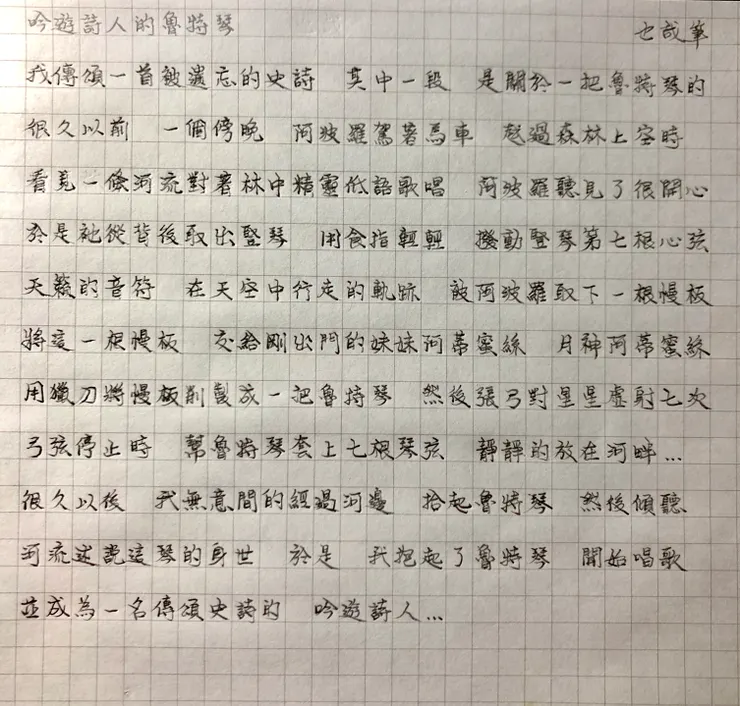 吟遊詩人的魯特琴 也哉筆
我傳頌一首被遺忘的史詩 其中一段 是關於一把魯特琴的
很久以前 一個傍晚 阿波羅駕著馬車 越過森林上空時
看見一條河流對著林中精靈低語歌唱 阿波羅聽見了很開心
於是祂從背後取出豎琴 用食指輕輕 撥動豎琴第七根心弦
天籟的音符 在天空中行走的軌跡 被阿波羅取下一根慢板
將這一根慢板 交給剛出門的妹妹阿蒂蜜絲 月神阿蒂蜜絲
用獵刀將慢板削製成一把魯特琴 然後張弓對星星虛射七次
弓弦停止時 幫魯特琴套上七根琴弦 靜靜的放在河畔...
很久以後 我無意間的經過河邊 拾起魯特琴 然後傾聽
河流述說這琴的身世 於是 我抱起了魯特琴 開始唱歌
並成為一名傳頌史詩的 吟遊詩人...